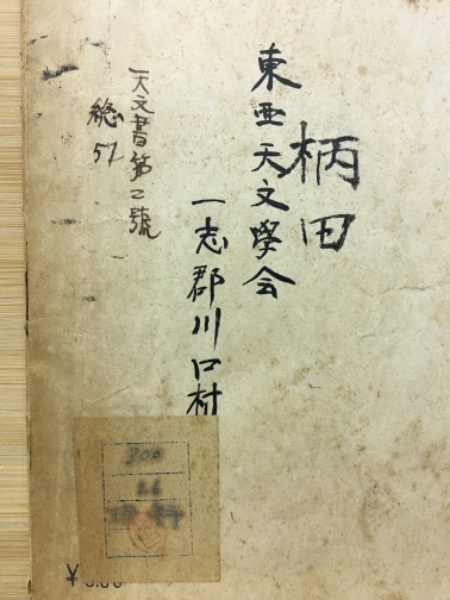 柄田
東亜天文學会
一志郡川口村
天文書第二號
總51
300
26
理科
¥